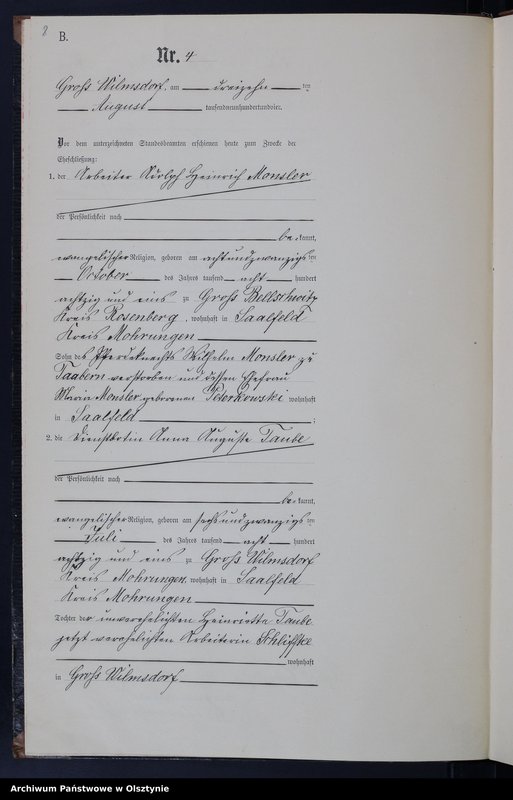 8
B.
Nr. 4
Groß Wilmsdorf, am dreizehn ten
August tausendneunhundertundvier.
Vor dem unterzeichneten Standesbeamten erschienen heute zum Zwecke der
Eheschließung:
1. der Arbeiter Adolph Heinrich Monsler
der Persönlichkeit nach
be kannt,
evangelischer Religion, geboren am achtundzwanzigsten
October des Jahres tausend acht hundert
achtzig und eins zu Groß Bellschwitz
Kreis Rosenberg, wohnhaft in Saalfeld
Kreis Mohrungen
Sohn des Pferdeknechts Wilhelm Monsler zu
Taabern verstorben und dessen Ehefrau
Maria Monsler geborenen wohnhaft
in Saalfeld ;
2. die Dienstbotin Anna Auguste Taube
der Persönlichkeit nach
be kannt,
evangelischer Religion, geboren am sechsundzwanzigsten
Juli des Jahres tausend acht hundert
achtzig und eins zu Groß Wilmsdorf
Kreis Mohrungen, wohnhaft in Saalfeld
Kreis Mohrungen
Tochter der unverehelichten Heinriette Taube
jetzt verehelichten Arbeiterin Schliffke
wohnhaft
in Groß Wilmsdorf
Archiwum Państwowe w Olsztynie